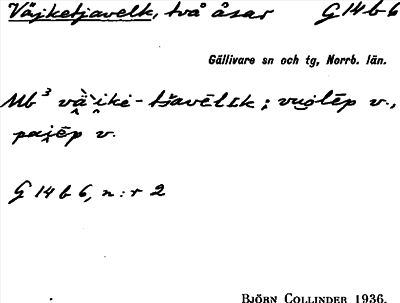 Väjketjavelk, två åsar G 14 b 6
Gällivare sn och tg, Norrb. län.
Mb³ vä̀i̯ke-tšavēlɛk; vuolēp v.,
pajēp v.
G 14 b 6, n:r 2
BJÖRN COLLINDER 1936.